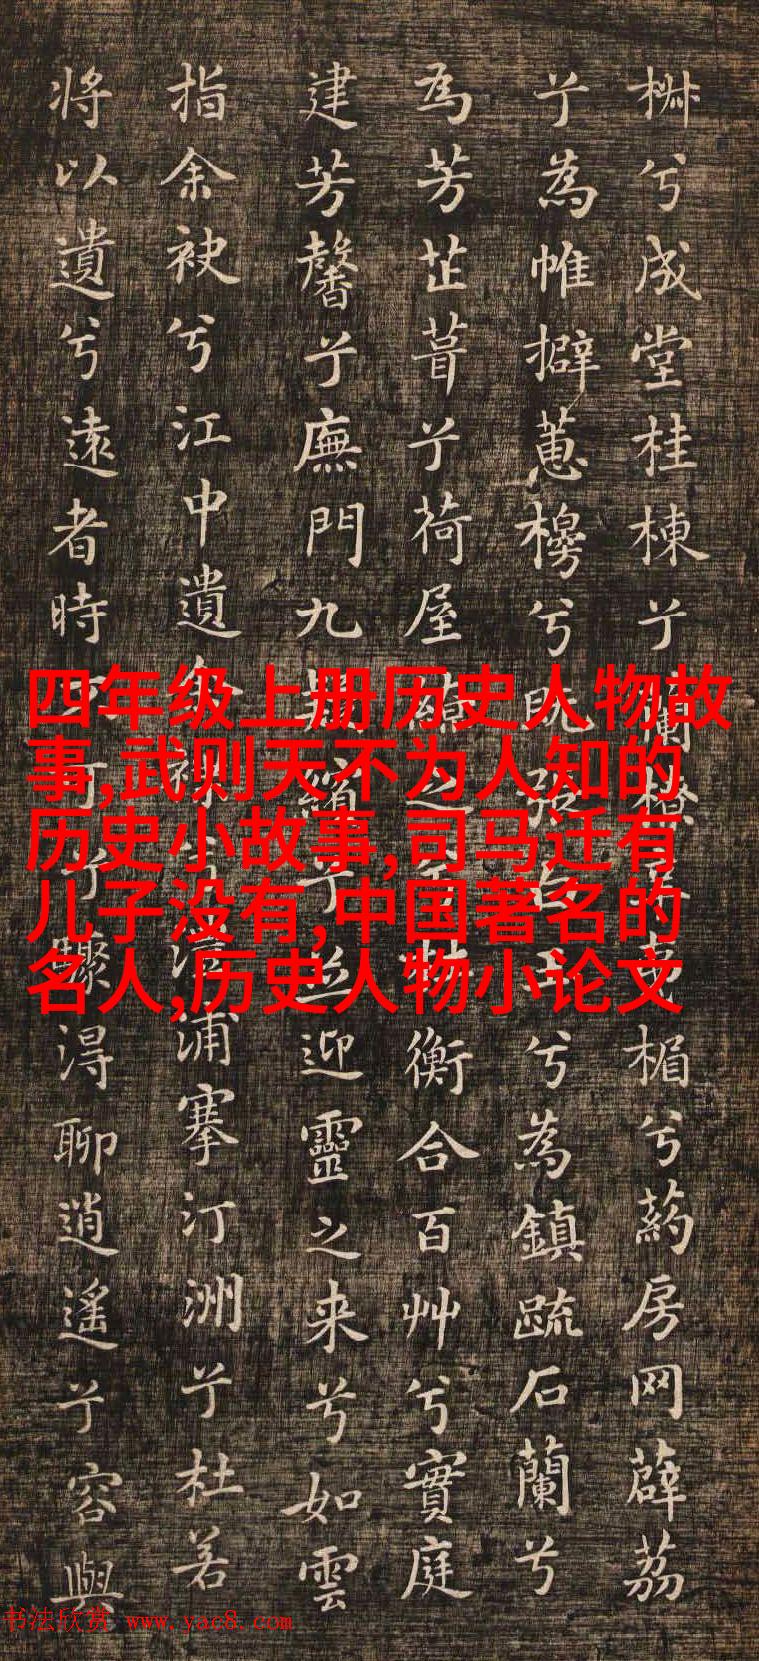 椒兮成堂桂棟兮蘭橑夷楣兮葯房网薜荔
兮為帷擗蕙櫋兮既張白玉兮為鎮疏石蘭兮
為芳芷葺兮荷屋之兮杜衡合百艸兮實庭
建芳馨兮廡門九嶷繽兮並迎靈之来兮如雲
指余袂兮江中遺余褋兮澧浦搴汀洲兮杜若
将以遺兮遠者時不可兮驟得聊逍遙兮容與
四年级上册历史人物故
事,武则天不为人知的
历史小故事,司马迁有
儿子没有,中国著名的
名人,历史人物小论文
书法欣赏 www.yac8.com